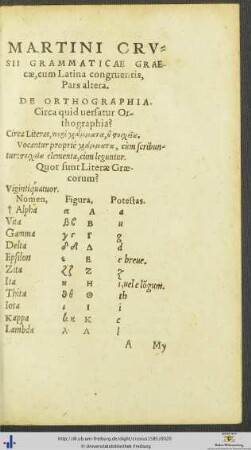 MARTINI CRV⸗
SII GRAMMATICAE GRAE-
cæ, cum Latina congruentis,
Pars altera.
DE ORTHOGRAPHIA.
Circa quid uersatur Or-
thographia?
Circa Literas, περὶ γράμματα, ἢ στοιχεῖα.
Vocantur propriè γράμματα, cùm scribun-
tur: στοιχεῖα elementa, cùm leguntur.
Quot sunt Literæ Græ-
corum?
Vigintiquatuor.
Nomen, Figura, Potestas.
† Alpha α A a
Vita β ϐ B u
Gamma γ Γ g
Delta δ Δ d
Epsilon ε E e breue.
Zita ζ Z z
Ita η H i, uel e lõgum.
Thita ϑ θ Θ th
Iota ι I i
Kappa κ K c
Lambda λ Λ l
A My
http://dl.ub.uni-freiburg.de/diglit/crusius1585/0020
© Universitätsbibliothek Freiburg